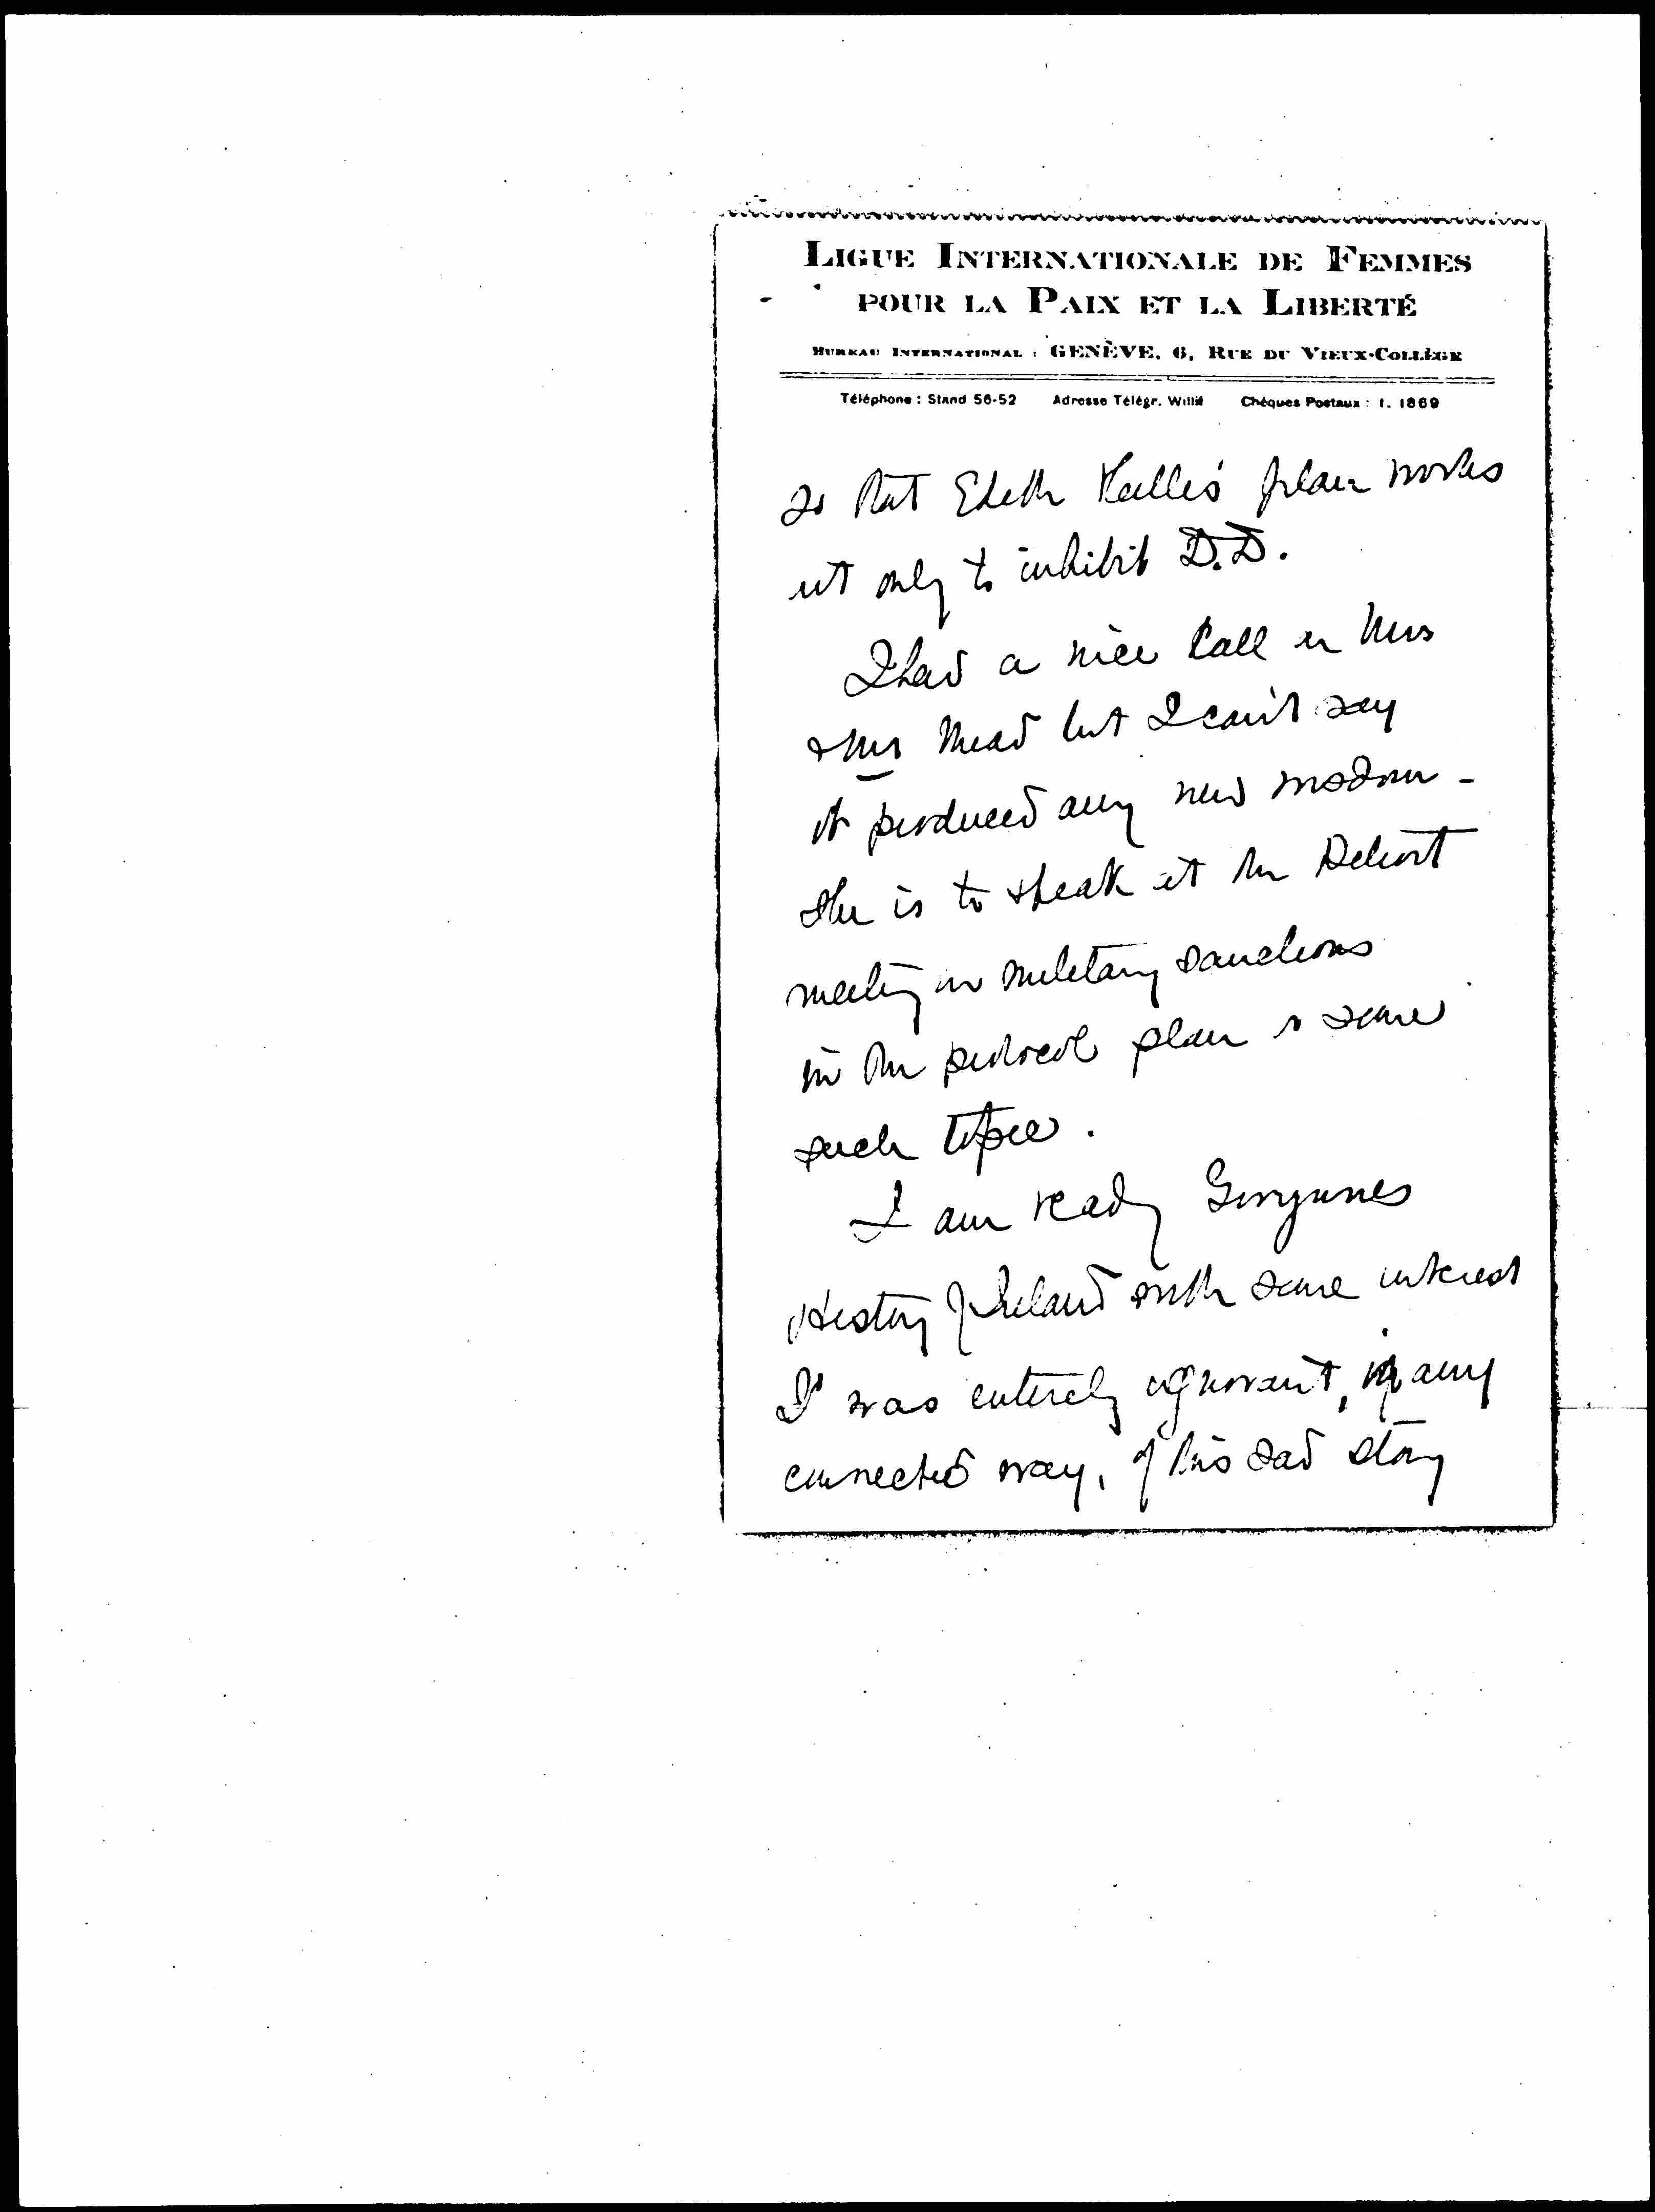 LIGUE INTERNATIONALE DE FEMMES
POUR LA PAIX ET LA LIBERTÉ
BUREAU INTERNATIONAL : GENÈVE, 6, RUE DU VIEUX-COLLÈGE
Téléphone : Stand 56-52 Adresse Télégr. Willif Chèques Postaux : I. 1869
so that Edith plan works
out only to inhibit D.D.
I had a nice call on Mrs
& Mr Mead but I can't say
it produced any new wisdom -
She is to speak at the Detroit
meeting on military sanctions
in the protocol plan or some
such topic.
I am ready Gwynnes
History of Ireland with some interest
I was entirely ignorant, in any
connected way, of this sad story